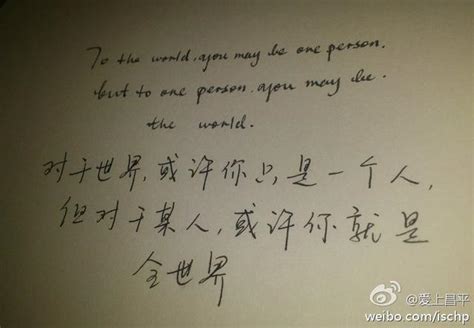 To the world, you may be one person.
but to one person, you may be.
the world.
对于世界，或许你只是一个人，
但对于某人，或许你就是
全世界
@爱上昌平
weibo.com/ischp